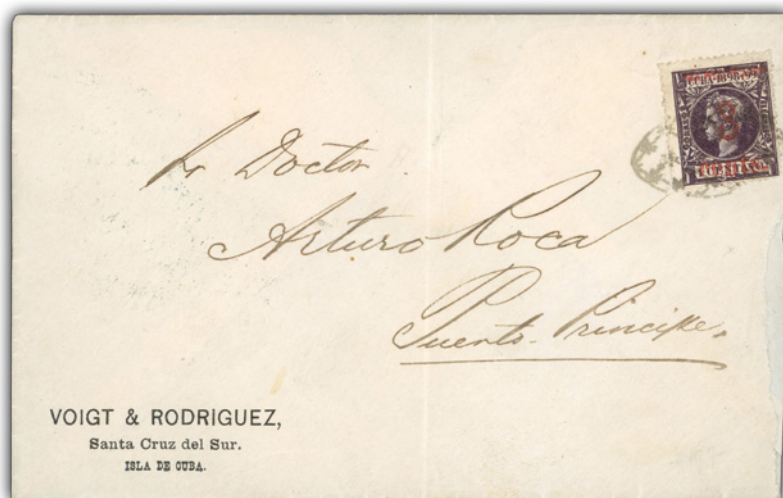 CUBA 1898 99
3
Sr Doctor
Arturo Roca
Puerto-Principe.
VOIGT & RODRIGUEZ,
Santa Cruz del Sur.
ISLA DE CUBA.